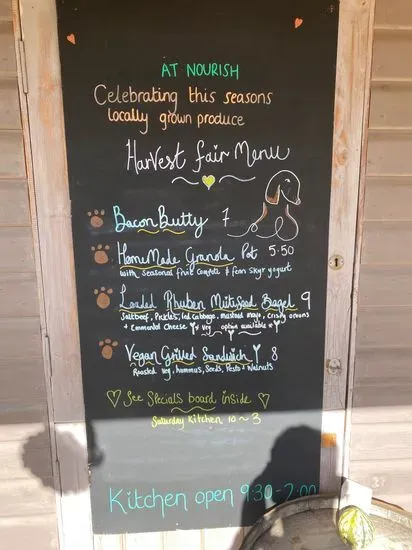 AT NOURISH
Celebrating this seasons
locally grown produce
Harvest fair Menu
Bacon Butty 7
HomeMade Granola Pot 5.50
with seasonal fruit Compote & fean skyr yogurt
Loaded Rhuben Multiseed Bagel 9
Saltbeef, Pickles, red cabbage, mustard mayo, crispy onions
+ Emmental Cheese veg option available
Vegan Grilled Sandwich 8
Roasted veg, hummus, Seeds, Pesto & Walnuts
See Specials board inside
Saturday Kitchen 10 ~ 3
Kitchen open 9:30-2:00